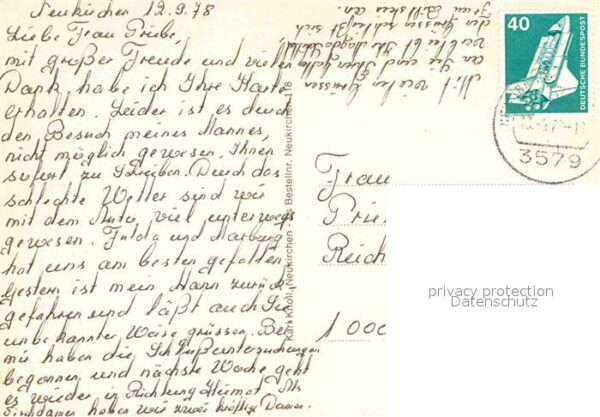 Neukirchen 12.9.78
Liebe Frau Priebe,
mit großer Freude und vielen
Dank, habe ich Ihre Karte
erhalten. Leider ist es durch
den Besuch meines Mannes,
nicht möglich gewesen, Ihnen
sofort zu schreiben. Durch das
schlechte Wetter sind wir
mit dem Auto, viel unterwegs
gewesen. Fulda und Marburg
hat uns am besten gefallen.
Gestern ist mein Mann zurück
gefahren und läßt auch Sie
unbekannter Weise grüssen. Bei
mir haben die Schlußuntersuchungen
begonnen und nächste Woche geht
es wieder in Richtung Heimat. Als
haben wir zwei Damen.
Mit vielen Grüssen
an Sie und
verbleibt Ihre
den Grüssen schließt sich
Frau an
Karl Knoll, Neukirchen - Bestellnr. Neukirchen 118
40
DEUTSCHE BUNDESPOST
3579
Frau
Prie
Reich
1000
privacy protection
Datenschutz